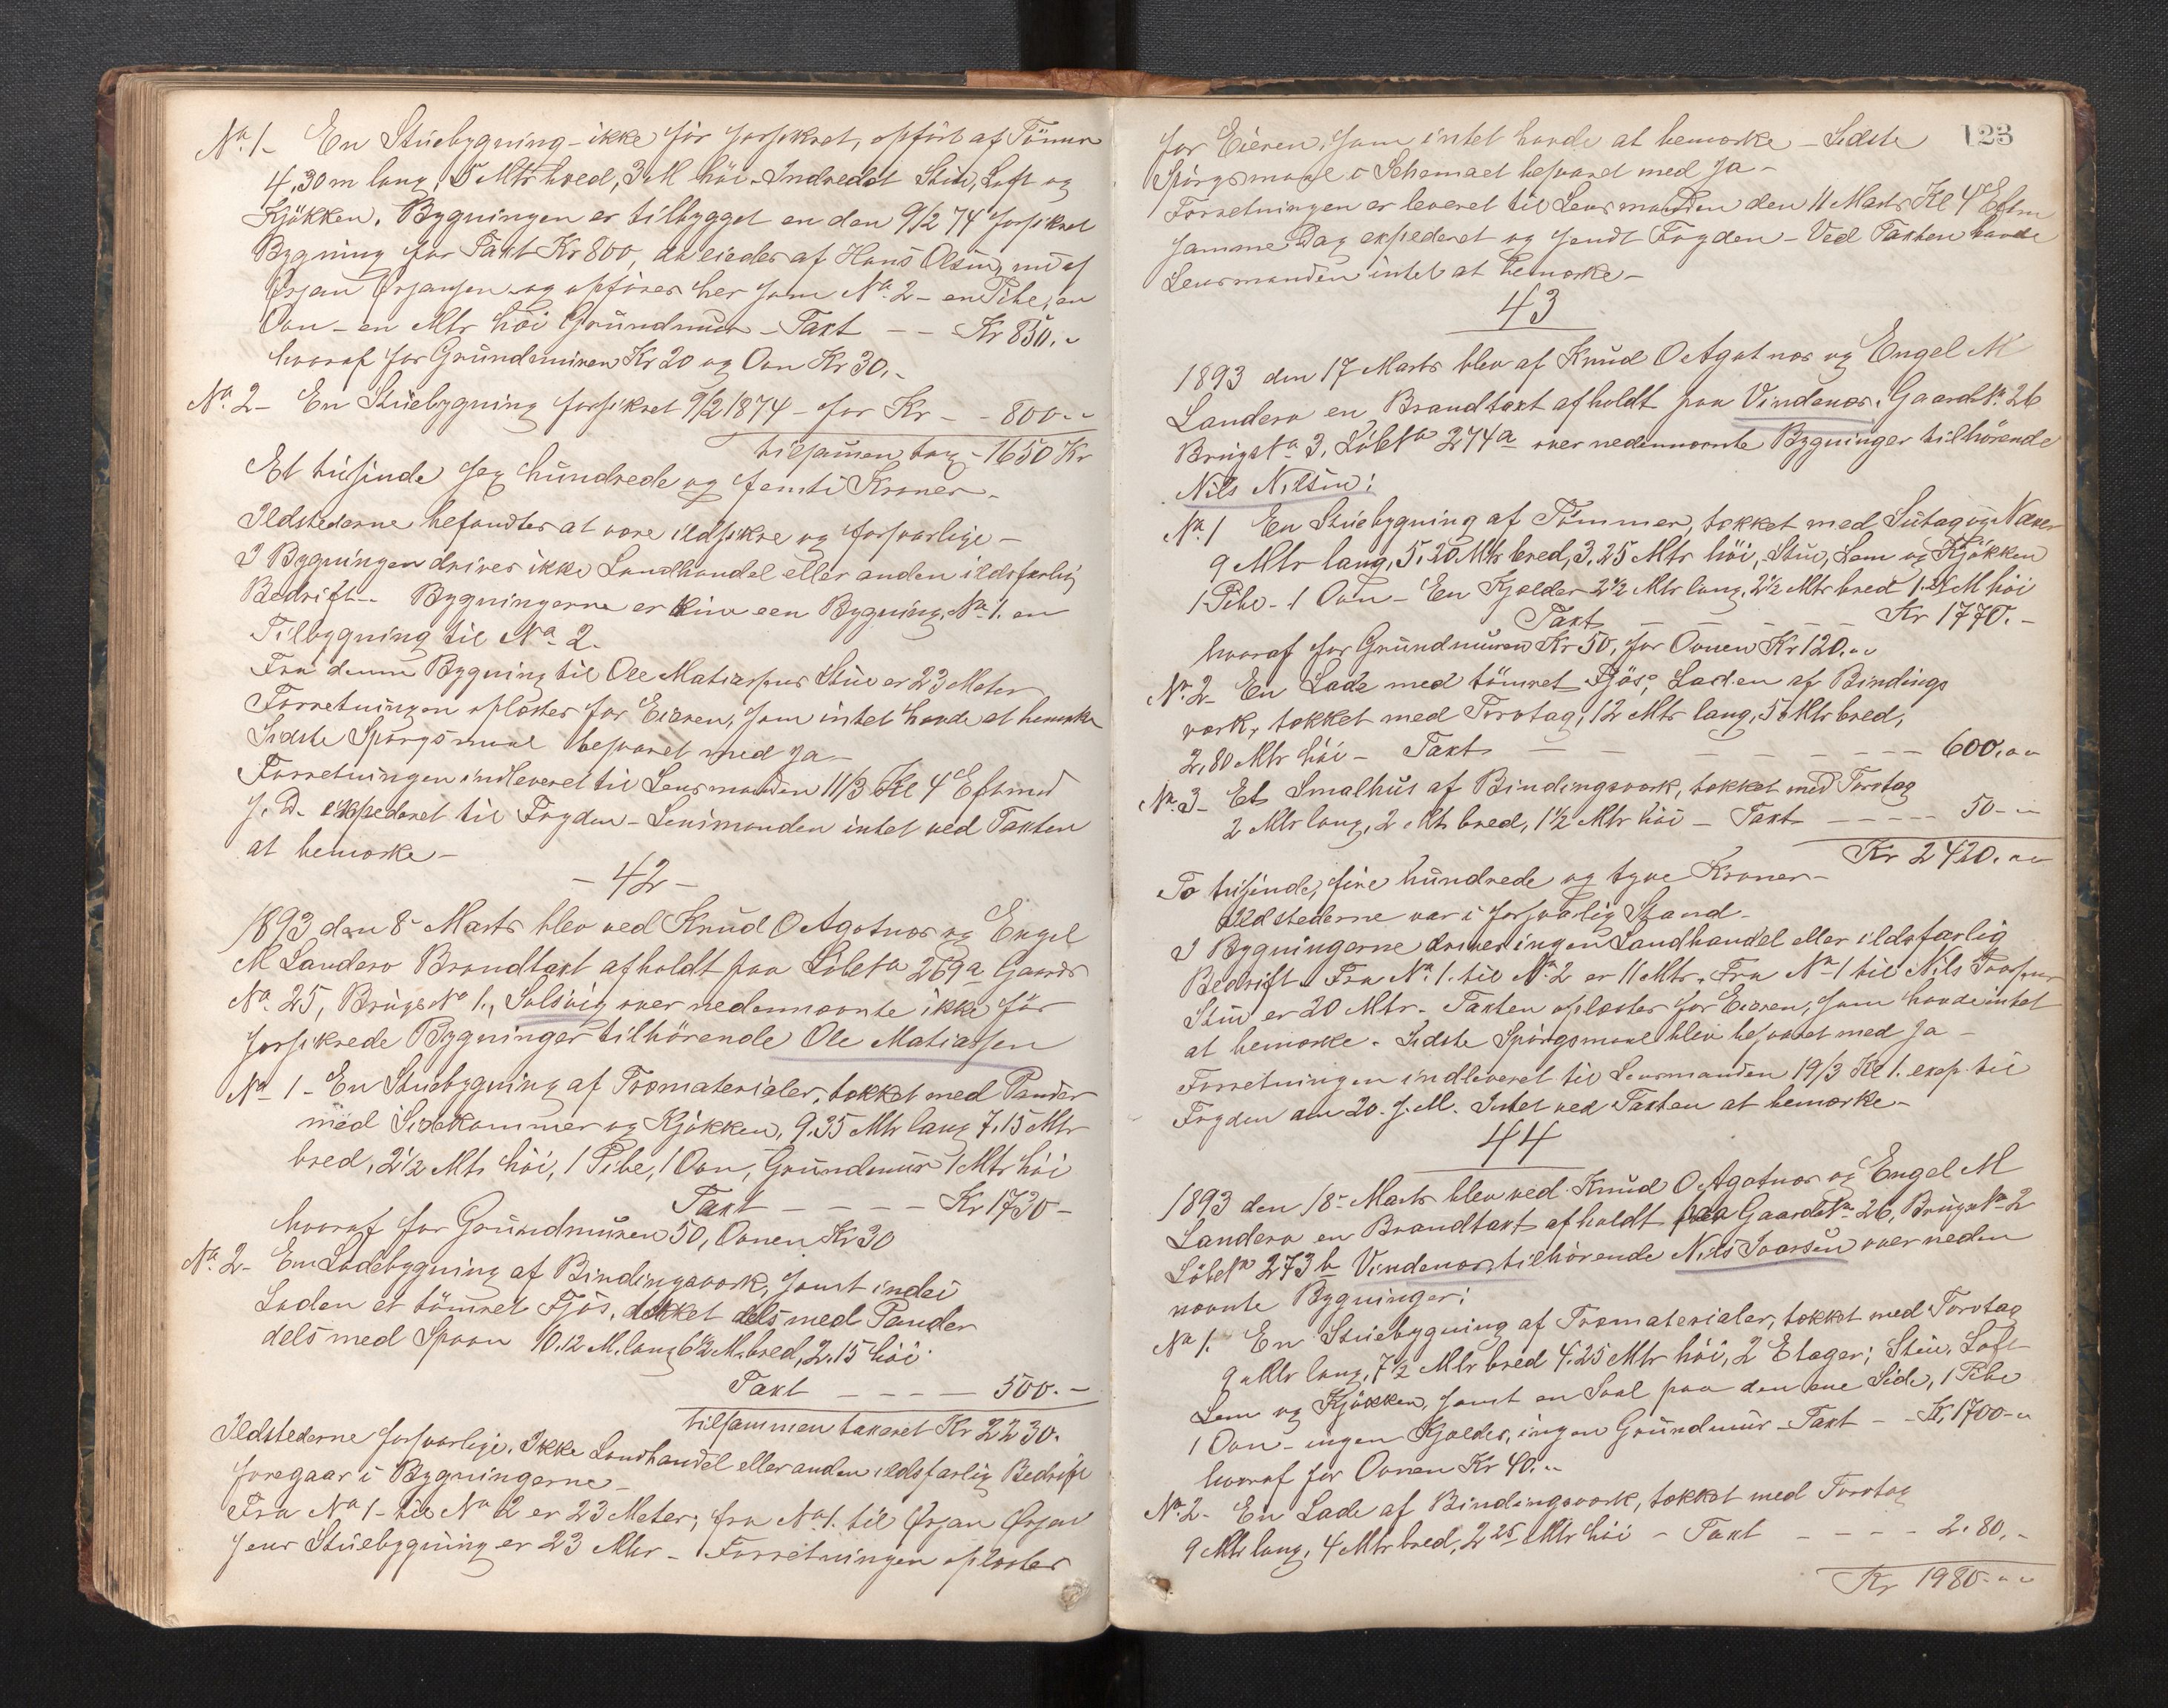 No. 1 - En Stuebygning - ikke før forsikret, opført af Tömmr
4,30 m lang, 5 Mtr bred, 3 M höi - Indredet Stue, Loft og
Kjökken. Bygningen er tilbygget en den 9/2 74 forsikret
Bygning for Taxt Kr 800, da eiedes af Hans Olsen, nu af
Ørjan Ørjansen og opföres her som No. 2 - en Pibe, en
Ovn - en Mtr höi Grundmur - Taxt - - Kr 850. "
hvoraf for Grundmuren Kr 20 og Ovn Kr 30. -
No. 2 - En Stuebygning forsikret 9/2 1874 - for Kr - - 800 - "
tilsammen tax - 1650 Kr
Et tusinde sex hundrede og femti Kroner -
Ildstederne befandtes at være ildsikre og forsvarlige -
I Bygningen drives ikke Landhandel eller anden ildsfarlig
Bedrift - Bygningerne er kun een Bygning, No. 1. en
Tilbygning til No. 2.
Fra denne Bygning til Ole Matiassens Stue er 23 Meter
Forretningen oplæstes for Eieren, som intet havde at bemærke
Sidste Spörgsmaal besvaret med Ja -
Forretningen indleveret til Lensmanden 11/3 Kl 4 Eftmd
s. D. expederet til Fogden - Lensmanden intet ved Taxten
at bemærke -
- 42 -
1893 den 8 - Marts blev ved Knud O Agotnes og Engel
M Landero Brandtaxt afholdt paa Löbe No 269a Gaards
No. 25, Brugs No 1., Solsvig over nedennævnte ikke før
forsikrede Bygninger tilhörende Ole Matiassen
No 1 - En Stuebygning af Træmaterialer, tækket med Pander
med Sidekammer og Kjökken, 9,35 Mtr lang 7,15 Mtr
bred, 2 1/2 Mtr höi, 1 Pibe, 1 Ovn, Grundmur 1 Mtr höi
Taxt - - - - Kr 1730 -
hvoraf for Grundmuren 50, Ovnen Kr 30
No. 2 - En Ladebygning af Bindingsværk, samt inde i
Laden et tömret Fjös, dækket dels med Pander
dels med Spaan 10.12 M. lang 6 1/2 M. bred, 2,15 höi
Taxt - - - - 500. -
tilsammen taxeret Kr 2230.
Ildstederne forsvarlige. Ikke Landhandel eller anden ildsfarlig Bedrift
foregaar i Bygningerne -
Fra No 1 - til No 2 er 23 Meter; fra No 1. til Ørjan Ørjan
sens Stuebygning er 23 Mtr - Forretningen oplæstes
123
for Eieren, som intet havde at bemærke - Sidste
Spörgsmaal i Schemaet besvaret med Ja -
Forretningen er leveret til Lensmanden den 11 Marts Kl 4 Eftm
samme Dag expederet og sendt Fogden - Ved Taxten havde
Lensmanden intet at bemærke -
43
1893 den 17 Marts blev af Knud O Agotnes og Engel M
Landero en Brandtaxt afholdt paa Vindenes, Gaards No. 26
Brugs No. 3, Löbe No 274a over nedennævnte Bygninger tilhörende
Nils Nilsen:
No. 1 En Stuebygning af Tömmer, tækket med Sutag og Næver
9 Mtr lang, 5,20 Mtr bred, 3,25 Mtr höi, Stue, Lem og Kjökken
1 Pibe - 1 Ovn - En Kjælder 2 1/2 Mtr lang, 2 1/2 Mtr bred M höi
Taxt - - - - - Kr 1770. -
hvoraf for Grundmuren Kr 50, for Ovnen Kr 120. "
No. 2 En Lade med tömret Fjös, Laden af Bindings
værk, tækket med Torvtag, 12 Mtr lang, 5 Mtr bred,
2,80 Mtr höi - Taxt - - - - - 600. "
No. 3 - Et Smalhus af Bindingsværk, tækket med Torvtag
2 Mtr lang, 2 Mtr bred, 1 1/2 Mtr höi - Taxt - - - - - 50 - "
Kr 2420. "
To tusinde, fire hundrede og tyve Kroner -
Ildstederne var i forsvarlig Stand -
I Bygningerne drives ingen Landhandel eller ildsfarlig
Bedrift - Fra No. 1. til No. 2 er 11 Mtr. Fra No 1 til Nils Ivarsens
Stue er 20 Mtr. Taxten oplæstes for Eieren, som havde intet
at bemærke. Sidste Spörgsmaal blev besvaret med Ja -
Forretningen indleveret til Lensmanden 19/3 Kl 1. exp. til
Fogden den 20. s. M. Intet ved Taxten at bemærke -
44
1893 den 18 - Marts blev ved Knud O Agotnes og Engel M
Landero en Brandtaxt afholdt paa Gaards No. 26, Brugs No. 2
Löbe No 273b Vindenes, tilhörende Nils Ivarsen over neden
nævnte Bygninger:
No 1. En Stuebygning af Træmaterialer, tækket med Torvtag
9 Mtr lang, 7 1/2 Mtr bred 4,25 Mtr höi, 2 Etager; Stue, Loft
Lem og Kjökken, samt en Sval paa den ene Side, 1 Pibe
1 Ovn - ingen Kjælder, ingen Grundmur - Taxt - - Kr 1700 - "
hvoraf for Ovnen Kr 40. "
No. 2 - En Lade af Bindingsværk, tækket med Torvtag
9 Mtr lang, 4 Mtr bred, 2,25 Mtr höi - Taxt - - - - 2.80. -
Kr 1980 - "